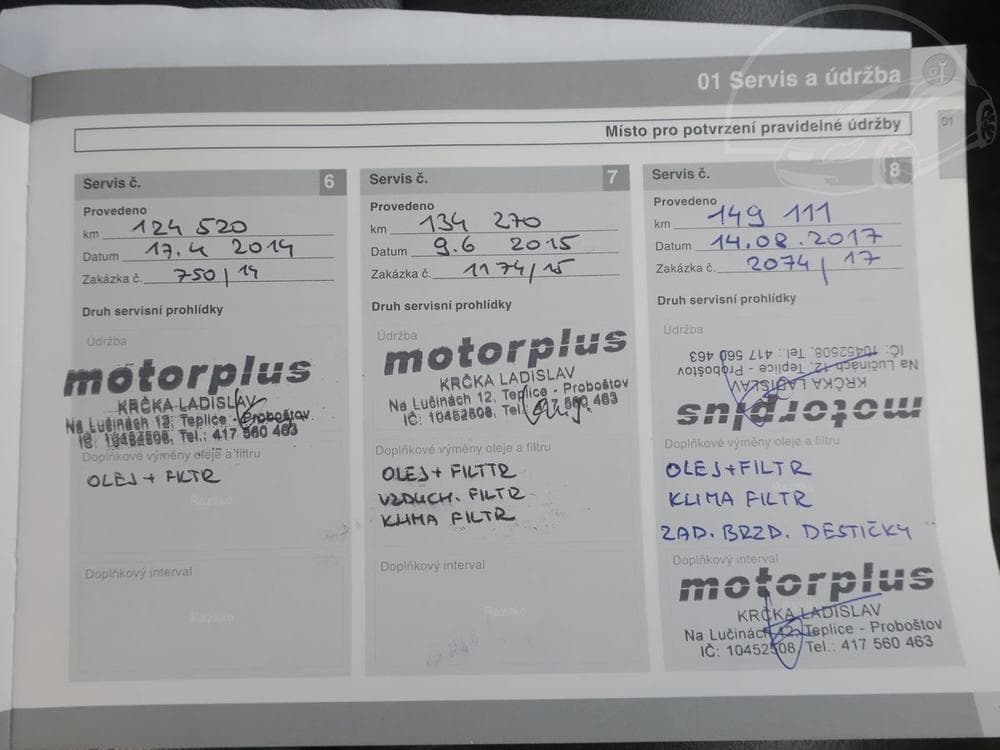 01 Servis a údržba
01
Místo pro potvrzení pravidelné údržby
Servis č. 6
Provedeno
km 124 520
Datum 17.4 2014
Zakázka č. 750/14
Druh servisní prohlídky
Údržba
motorplus
KRČKA LADISLAV
Na Lučinách 12, Teplice - Proboštov
IČ: 10452508, Tel.: 417 560 463
Doplňkové výměny oleje a filtru
OLEJ + FILTR
Razítko
Doplňkový interval
Razítko
Servis č. 7
Provedeno
km 134 270
Datum 9.6 2015
Zakázka č. 1174/15
Druh servisní prohlídky
Údržba
motorplus
KRČKA LADISLAV
Na Lučinách 12, Teplice - Proboštov
IČ: 10452508, Tel.: 417 560 463
Doplňkové výměny oleje a filtru
OLEJ + FILTTR
VZDUCH. FILTR
KLIMA FILTR
Doplňkový interval
Razítko
Servis č. 8
Provedeno
km 149 111
Datum 14.08.2017
Zakázka č. 2074/17
Druh servisní prohlídky
Údržba
motorplus
KRČKA LADISLAV
Na Lučinách 12, Teplice - Proboštov
IČ: 10452508, Tel.: 417 560 463
Doplňkové výměny oleje a filtru
OLEJ + FILTR
KLIMA FILTR
ZAD. BRZD. DESTIČKY
Doplňkový interval
motorplus
KRČKA LADISLAV
Na Lučinách 12, Teplice - Proboštov
IČ: 10452508, Tel.: 417 560 463